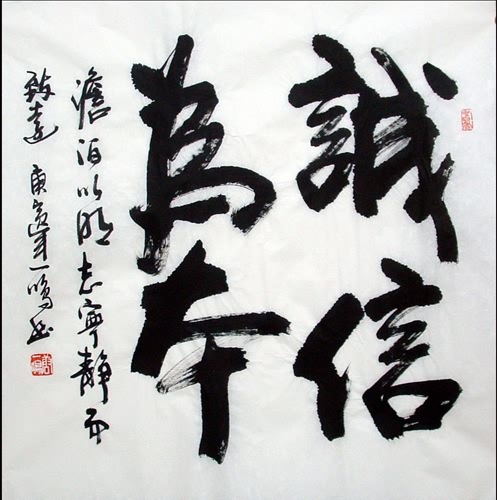 誠信
為本
澹泊以明志寧靜而
致遠 庚寅年一鳴書